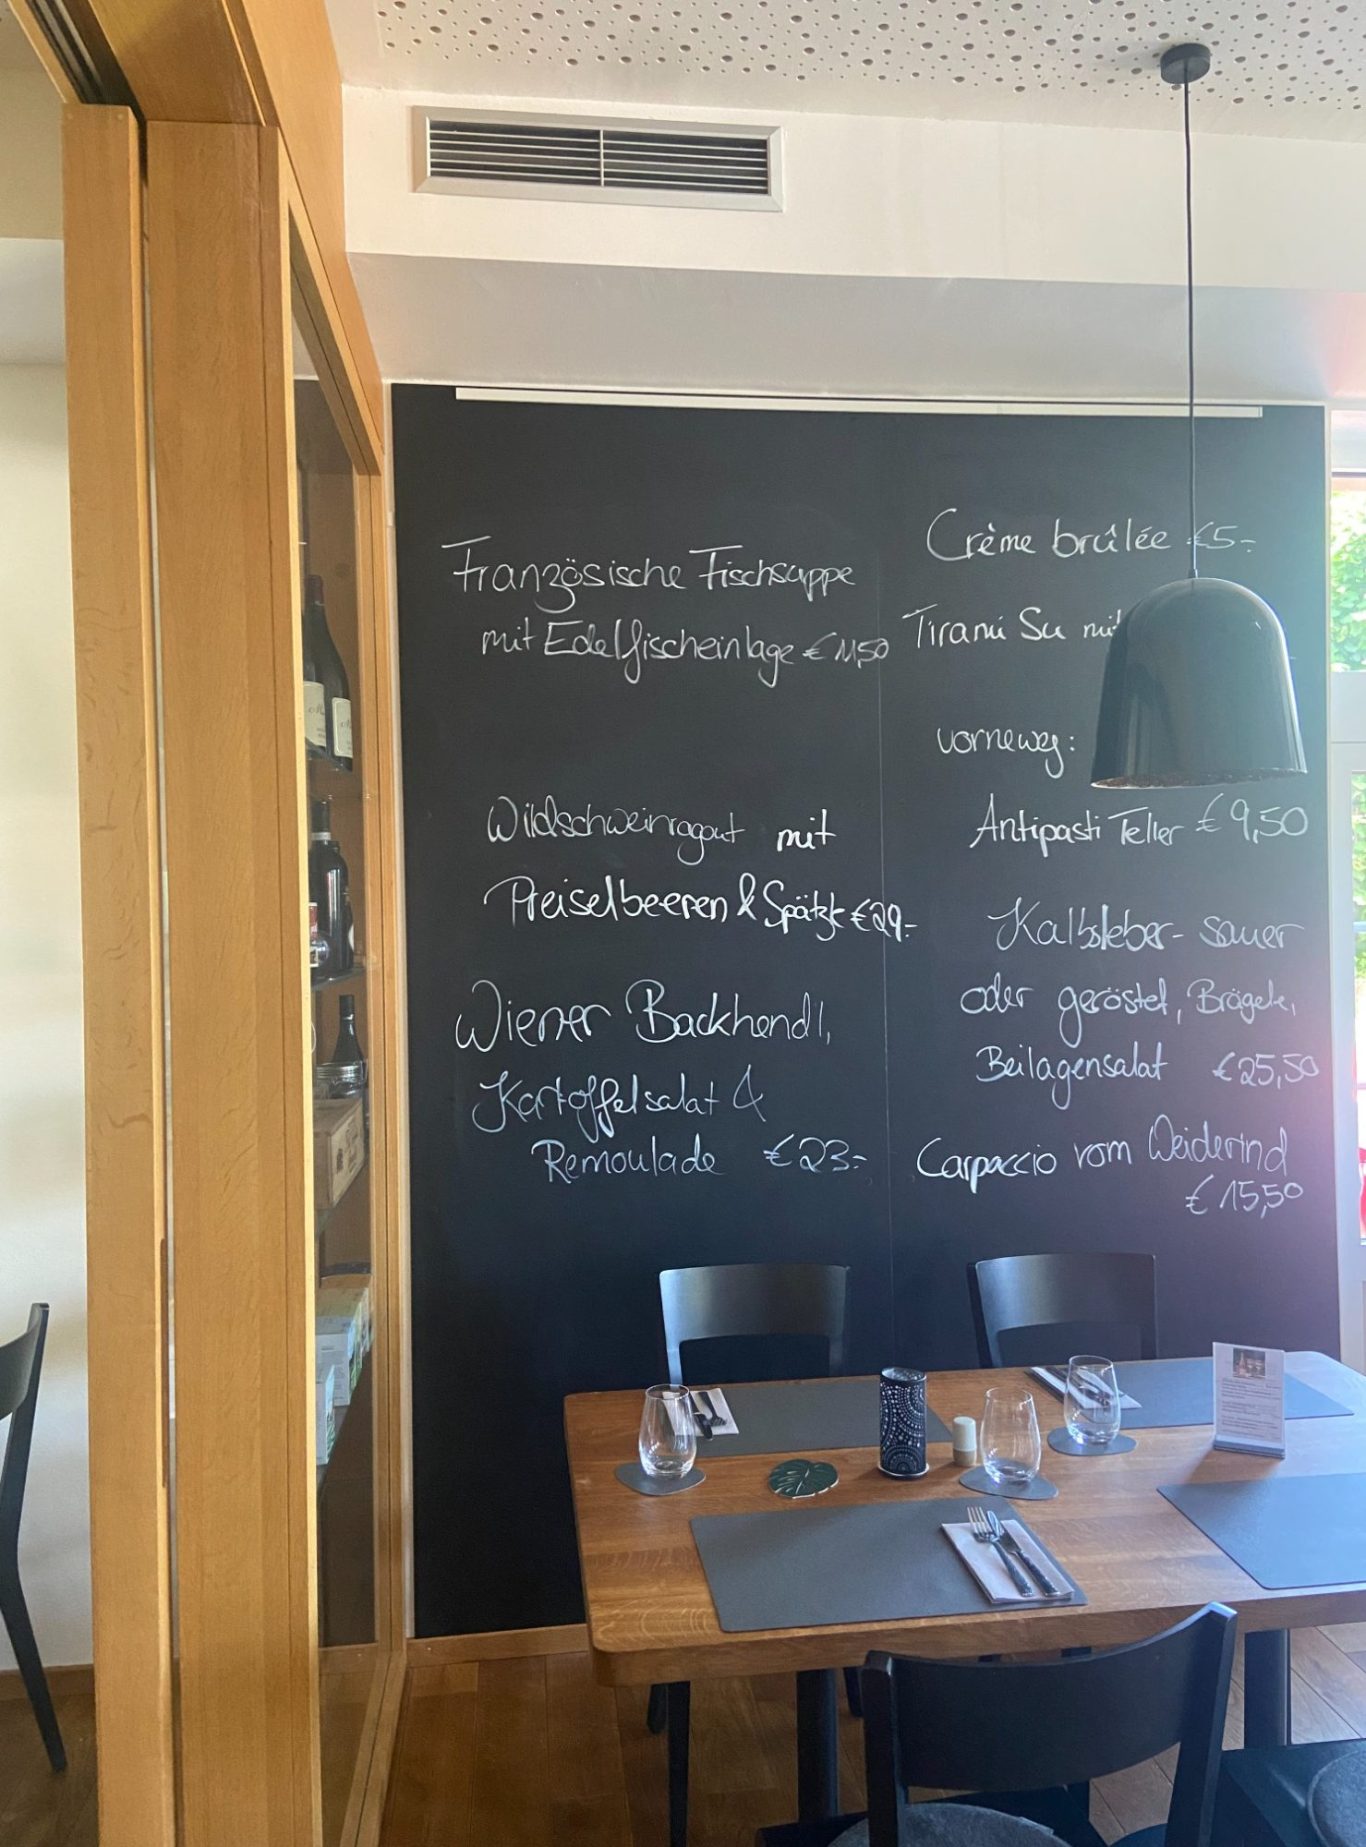 Französische Fischsuppe
mit Edelfischeinlage € 11,50
Wildschweinragout mit
Preiselbeeren & Spätzle €29.-
Wiener Backhendl,
Kartoffelsalat &
Remoulade €23.-
Crème brûlée €5.-
Tirami Su mit
vorneweg:
Antipasti Teller € 9,50
Kalbsleber- sauer
oder geröstet, Brägele,
Beilagensalat €25,50
Carpaccio vom Weiderind
€ 15,50